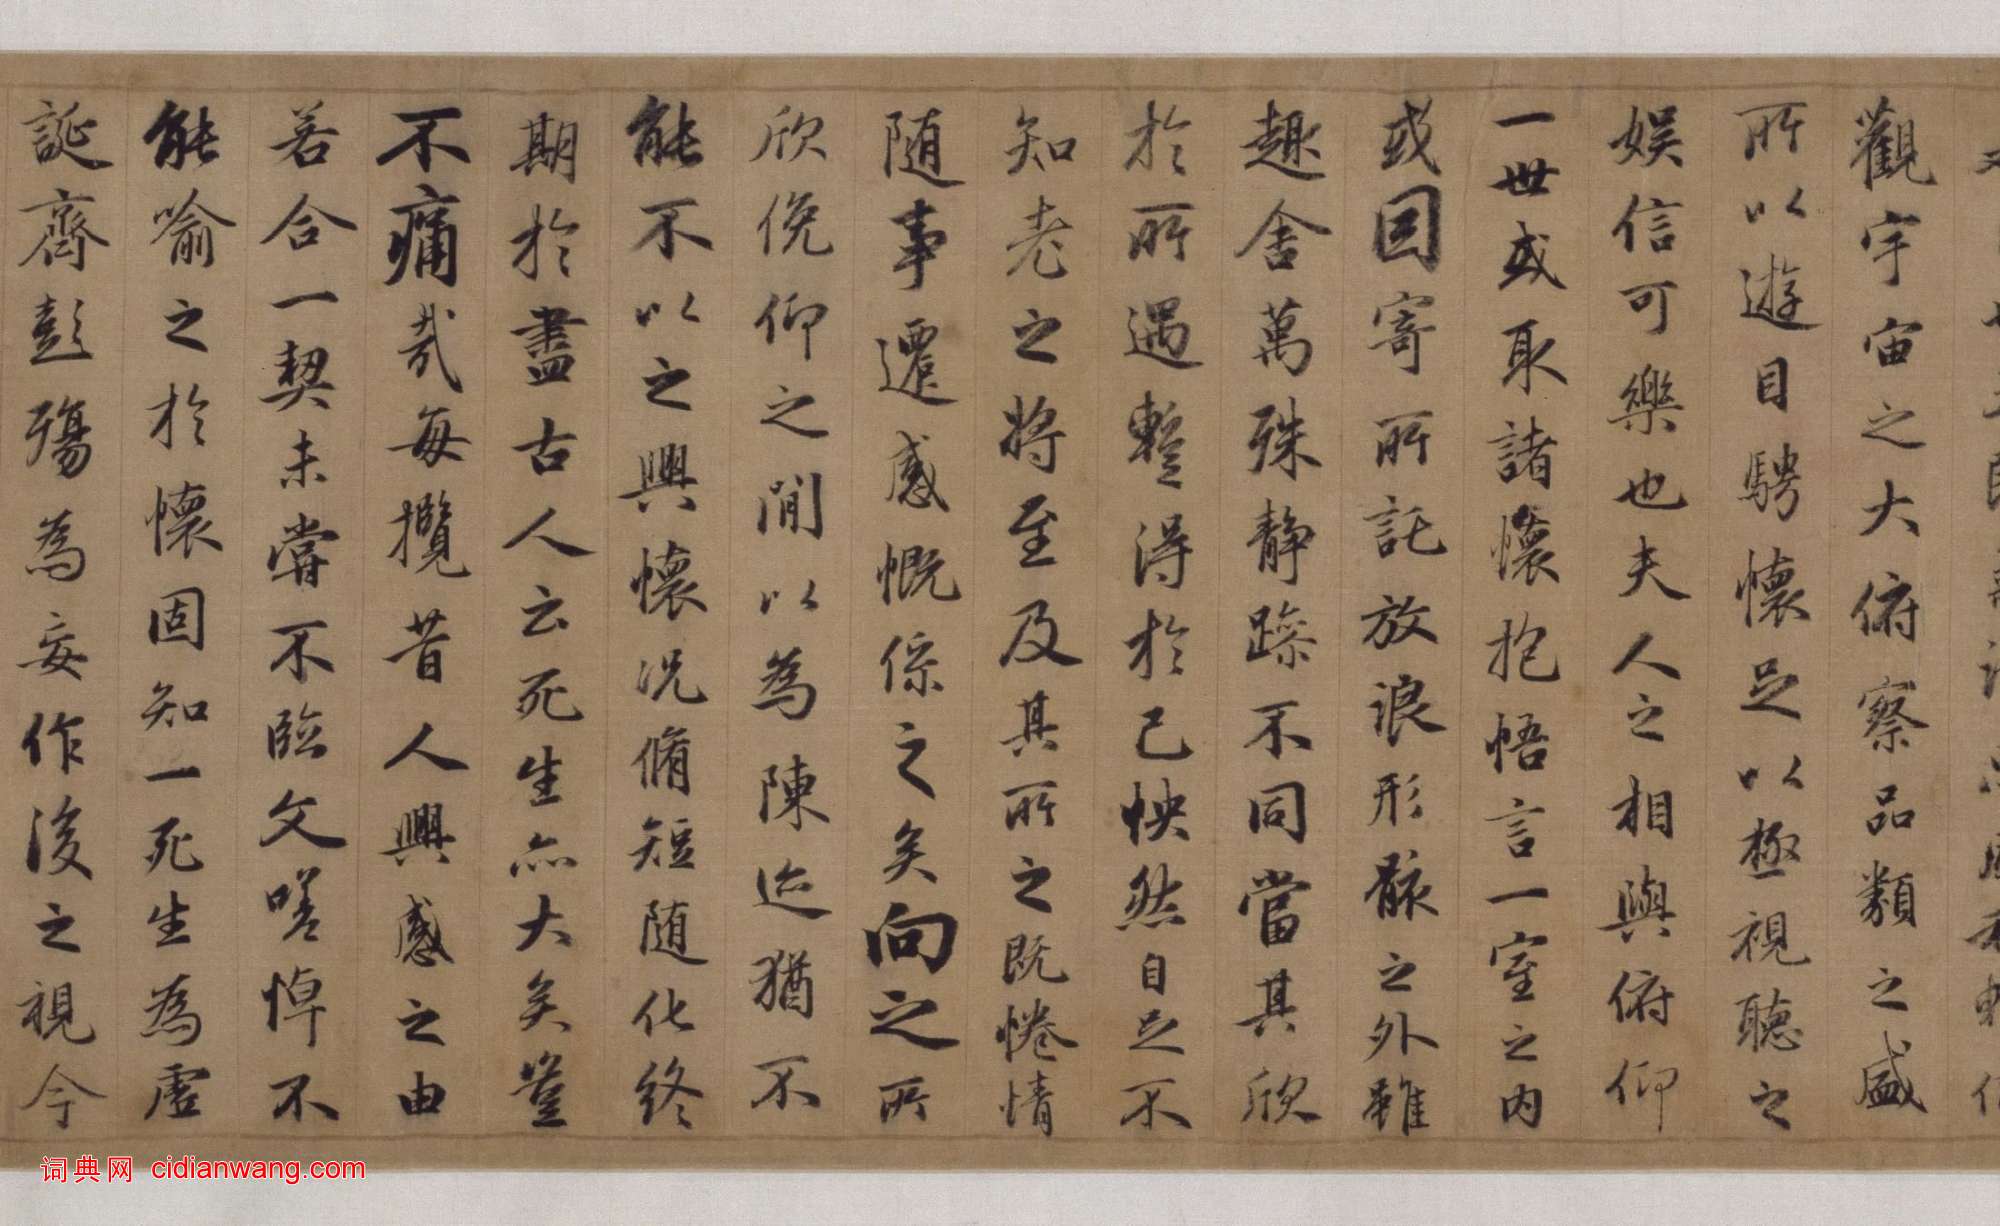 觀宇宙之大俯察品類之盛
所以遊目騁懷足以極視聽之
娛信可樂也夫人之相與俯仰
一世或取諸懷抱悟言一室之内
或因寄所託放浪形骸之外雖
趣舍萬殊静躁不同當其欣
於所遇暫得於己怏然自足不
知老之將至及其所之既惓情
随事遷感慨係之矣向之所
欣俛仰之閒以為陳迹猶不
能不以之興懷况脩短随化終
期於盡古人云死生亦大矣豈
不痛哉每攬昔人興感之由
若合一契未嘗不臨文嗟悼不
能喻之於懷固知一死生為虚
誕齊彭殤為妄作後之視今
词典网 cidianwang.com